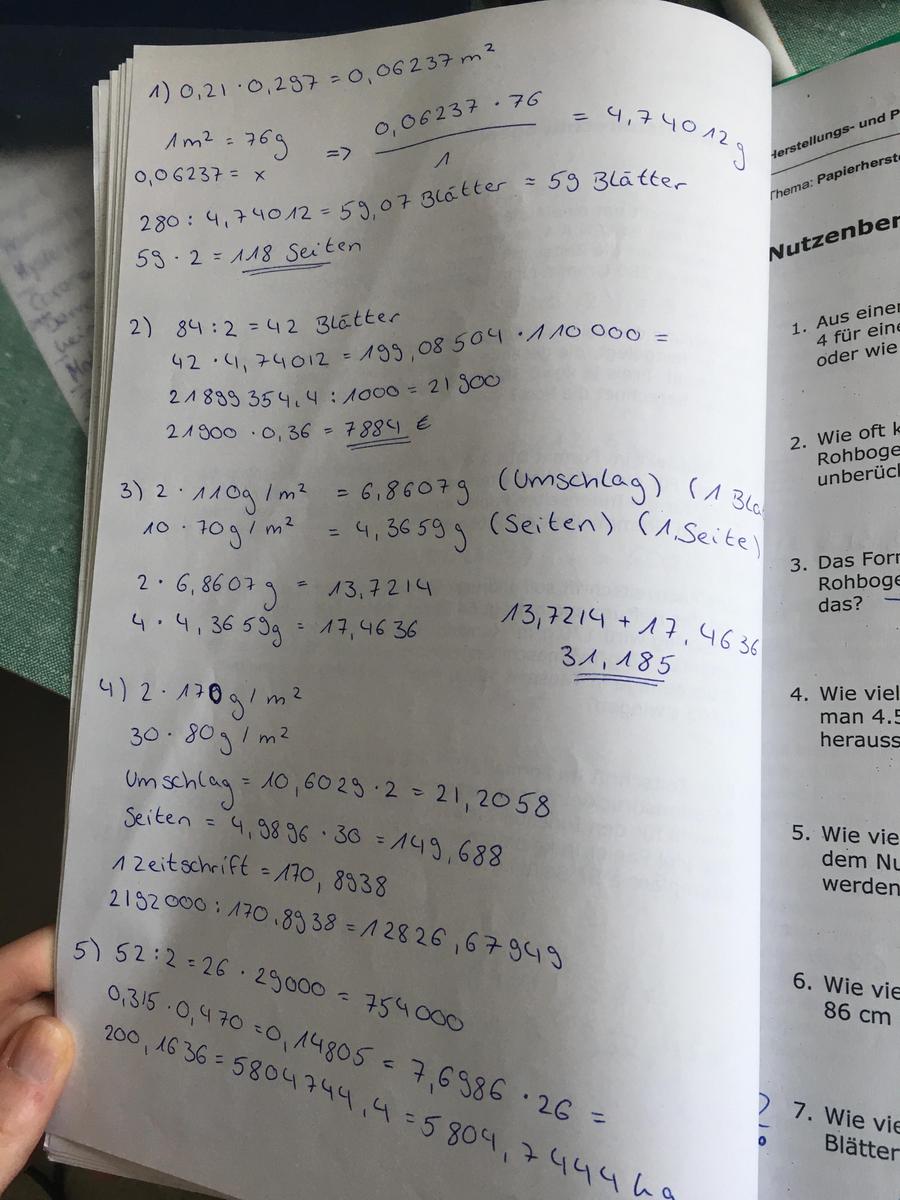 1) 0,21 · 0,297 = 0,06237 m²
1m² = 76g => 0,06237 · 76 / 1 = 4,74012g
0,06237 = x
280 : 4,74012 = 59,07 Blätter ≈ 59 Blätter
59 · 2 = 118 Seiten
2) 84 : 2 = 42 Blätter
42 · 4,74012 = 199,08504 · 110 000 =
21899354,4 : 1000 = 21900
21900 · 0,36 = 7884 €
3) 2 · 110g/m² = 6,8607g (Umschlag) (1 Bla
10 · 70g/m² = 4,3659g (Seiten) (1. Seite)
2 · 6,8607g = 13,7214
4 · 4,3659g = 17,4636
13,7214 + 17,4636
31,185
4) 2 · 170g/m²
30 · 80g/m²
Umschlag = 10,6029 · 2 = 21,2058
Seiten = 4,9896 · 30 = 149,688
1 Zeitschrift = 170,8938
2192000 : 170,8938 = 12826,67949
5) 52 : 2 = 26 · 29000 = 754000
0,315 · 0,470 = 0,14805 = 7,6986 · 26 =
200,1636 = 5804744,4 = 5804,7444 kg
Herstellungs- und P
Thema: Papierherste
Nutzenber
1. Aus einer
4 für eine
oder wie
2. Wie oft k
Rohboge
unberück
3. Das Forr
Rohboge
das?
4. Wie viel
man 4.5
herauss
5. Wie vie
dem Nu
werden
6. Wie vie
86 cm
?
7. Wie vie
Blätter